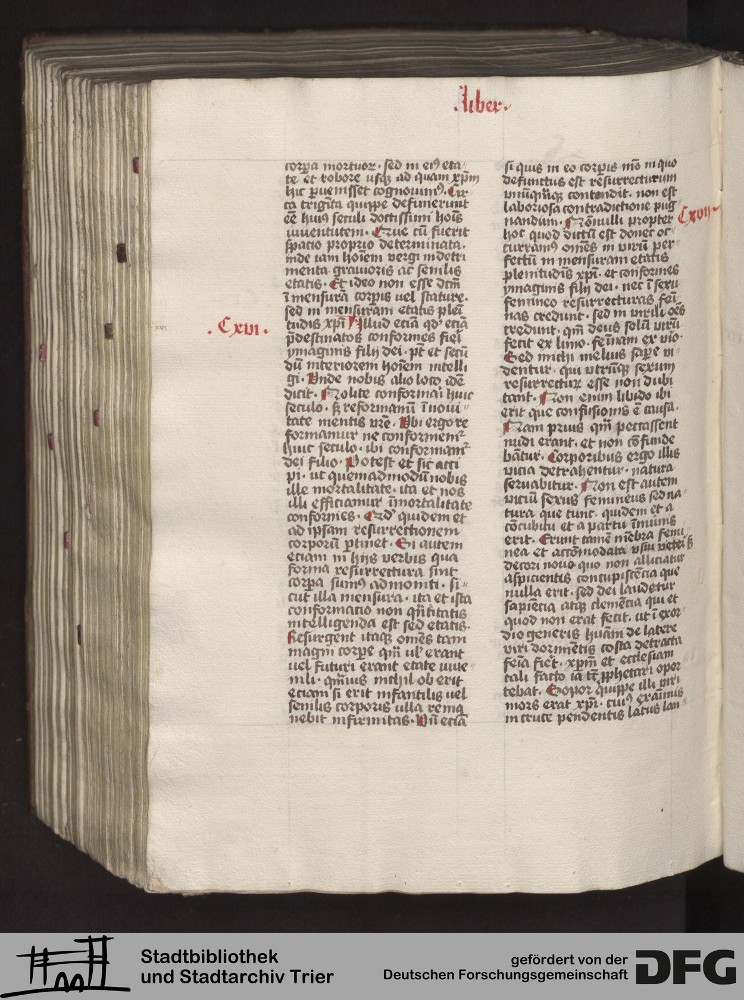 .Liber.
corpa mortuor. sed in ei9 eta
te et robore usq ad quam xpm
hic puenisset cognouim9. Cir
ca trigita quippe defunerunt
ee hui9 seculi doctissimi hois
iuuentutem. Que cu fuerit
spacio proprio determinata.
inde iam hoiem uergi in detri
menta grauioris ac senilis
etatis. Et ideo non esse dctm
i mensura corpis uel stature.
sed in mensuram etatis plei
tudis xpi Illud ecia qd ecia
.Cxvi.
pdestinatos conformes fiei
ymaginis filij dei. pt et secu
du interiorem hoiem intelli
gi. Unde nobis alio loco ide
dicit. Nolite conformai huic
seculo. sz reformamini i noui
tate mentis vre. Ubi ergo re
formamur ne conformem
huic seculo. ibi conformam
dei filio. Potest et sic acci
pi. ut quemadmodu nobis
ille mortalitate. ita et nos
illi efficiamur imortalitate
conformes. Qd quidem et
ad ipsam resurrectionem
corporu ptinet. Si autem
eciam in hijs verbis qua
forma resurrectura sint
corpa sum9 admoniti. si
cut illa mensura. ita et ista
conformacio non qntitatis
intelligenda est sed etatis.
Resurgent itaq omes tam
magni corpe qm uel erant
uel futuri erant etate iuue
nili. qmuis nichil ob erit
eciam si erit infantilis uel
senilis corporis ulla remq
nebit infirmitas. Un ecia
si quis in eo corpis mo in quo
defunctus est resurrecturum
unuqmq contendit. non est
laboriosa contradictione pug
nandum. Nonulli propter
Cxvii
hoc quod dictu est donec oc
curram9 omes in viru per
fectu in mensuram etatis
plenitudis xpi. et conformes
ymaginis filij dei. nec i sexu
femineo resurrecturas fei
nas credunt. sed in virili oes
credunt. qm deus solu viru
fecit ex limo. feinam ex viro
Sed michi melius sape vi
dentur. qui utruq sexum
resurrectur esse non dubi
tant. Non enim libido ibi
erit que confusionis e causa.
Nam prius qm peccassent
nudi erant. et non cofunde
bantur. Corporibus ergo illis
vicia detrahentur. natura
seruabitur. Non est autem
viciu sexus femineus sed na
tura que tunc. quidem et a
cocubitu et a partu imunis
erit. Erunt tame mebra femi
nea et accomodata usui veteri sz
decori nouo quo non alliciatur
aspicientis concupiscecia que
nulla erit. sed dei laudetur
sapiecia atq clemecia qui et
quod non erat fecit. ut i exor
dio generis huani de latere
viri dormietis costa detracta
feia fiet. xpm et ecclesiam
tali facto ia tc pphetari opor
tebat. Sopor quippe illi9 viri
mors erat xpi. cui9 exaimis
in cruce pendentis latus lan
Stadtbibliothek
und Stadtarchiv Trier
gefördert von der
Deutschen Forschungsgemeinschaft
DFG